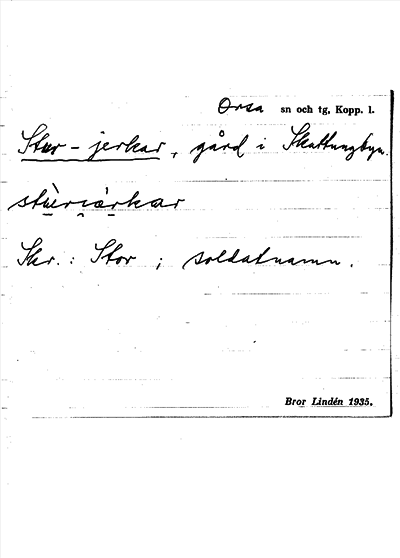 Orsa sn och tg, Kopp. l.
Stur-jerkar, gård i Skattungbyn.
stù̀riä̀rkar
Skr.: Stor ; soldatnamn.
Bror Lindén 1935.